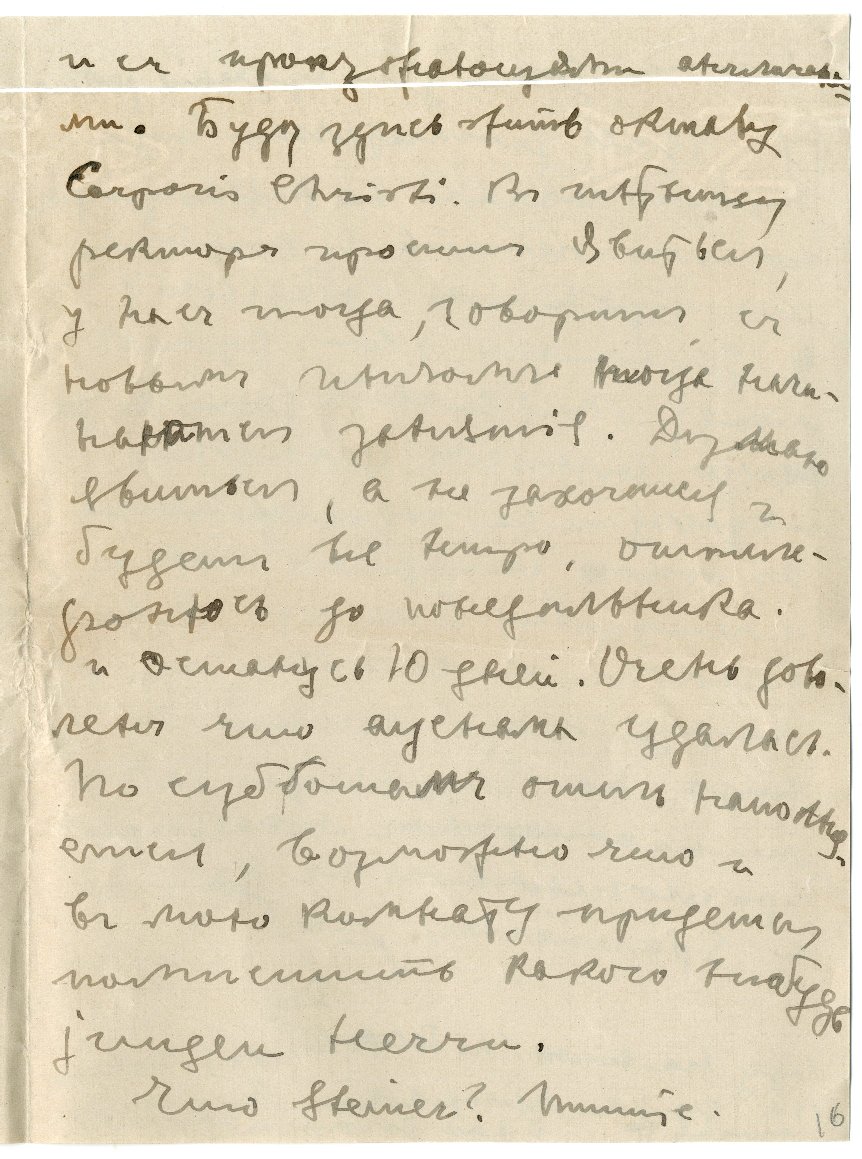 и съ прокуж англичана-
ми. Буду здѣсь жить октаву
Corporis Christi. Къ
ректора просили явиться,
у насъ тогда, говорили, съ
новымъ тогда начи-
нается затишіе. Думаю
явиться, а не захочется и
будетъ не хитро, отлыне-
до понедѣльника.
и останусь 10 дней. Очень дово-
ленъ что удалась.
По субботамъ отель наполня-
ется, возможно что и
въ мою комнату придется
помѣстить какого нибудь
jungen Herrn.
Что Steiner? Пишите.
16